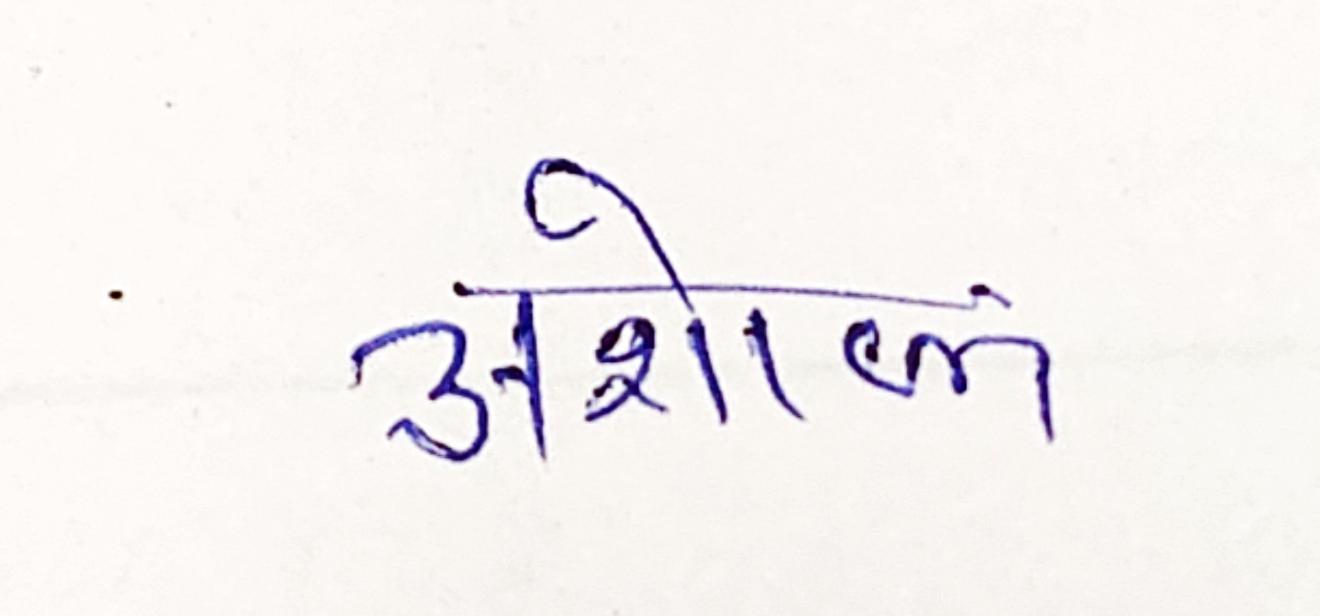 अशोक